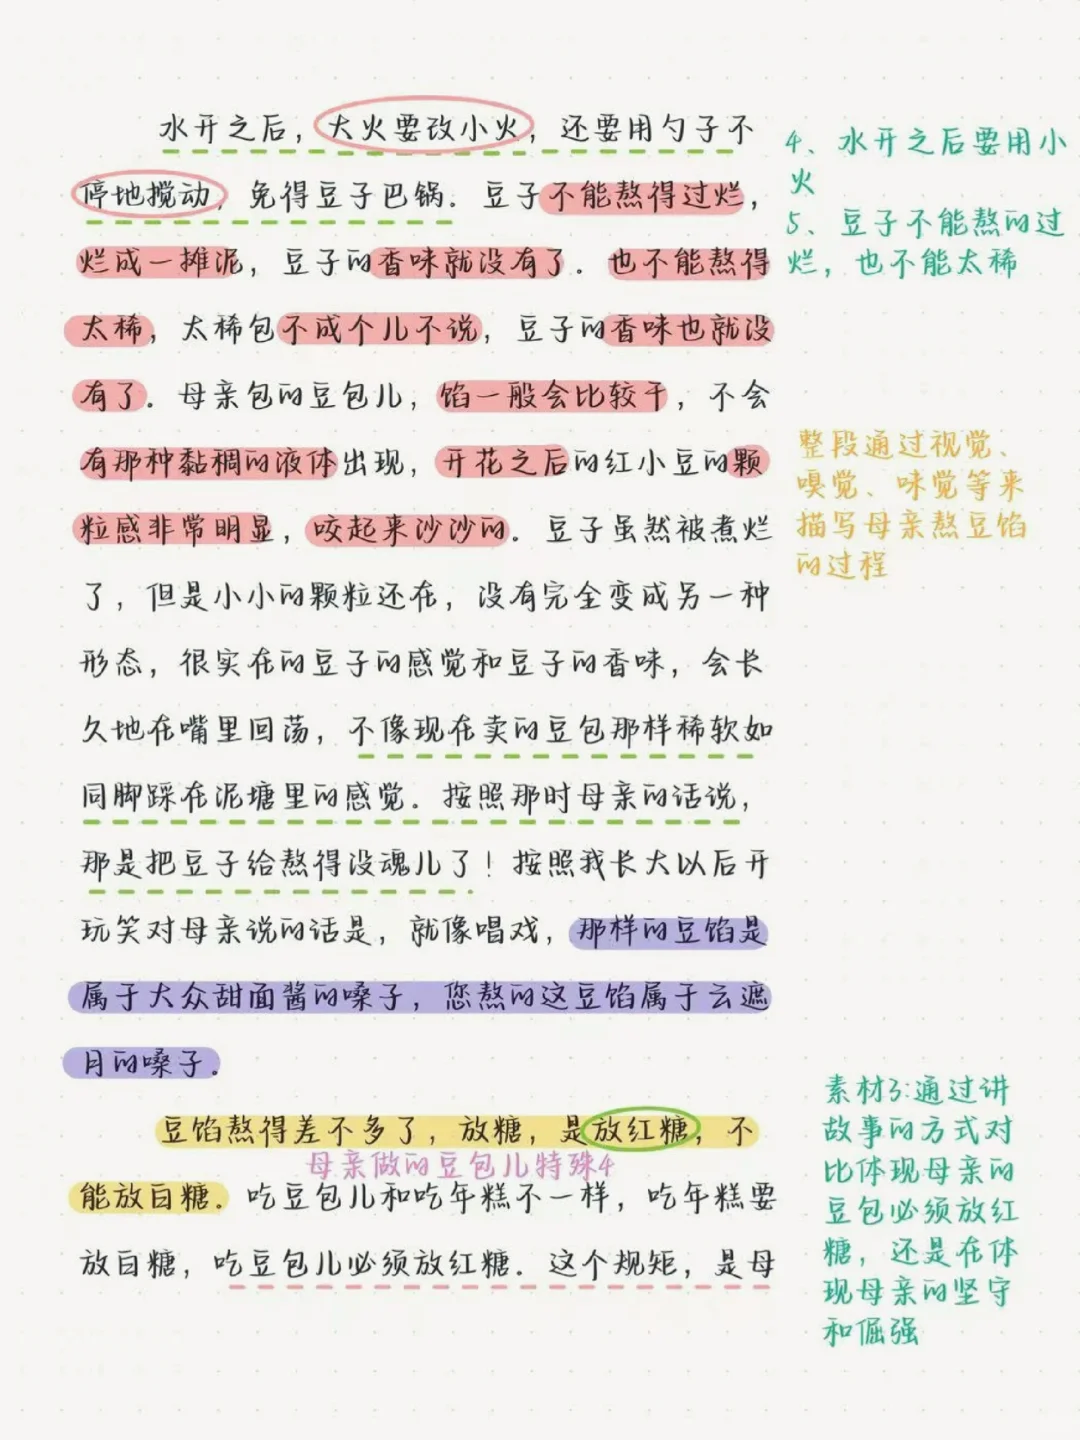 水开之后，大火要改小火，还要用勺子不
停地搅动，免得豆子巴锅．豆子不能熬得过烂，
烂成一摊泥，豆子的香味就没有了．也不能熬得
太稀，太稀包不成个儿不说，豆子的香味也就没
有了．母亲包的豆包儿，馅一般会比较干，不会
有那种黏稠的液体出现，开花之后的红小豆的颗
粒感非常明显，咬起来沙沙的．豆子虽然被煮烂
了，但是小小的颗粒还在，没有完全变成另一种
形态，很实在的豆子的感觉和豆子的香味，会长
久地在嘴里回荡，不像现在卖的豆包那样稀软如
同脚踩在泥塘里的感觉．按照那时母亲的话说，
那是把豆子给熬得没魂儿了！按照我长大以后开
玩笑对母亲说的话是，就像唱戏，那样的豆馅是
属于大众甜面酱的嗓子，您熬的这豆馅属于云遮
月的嗓子．
豆馅熬得差不多了，放糖，是放红糖，不
母亲做的豆包儿特殊4
能放白糖．吃豆包儿和吃年糕不一样，吃年糕要
放白糖，吃豆包儿必须放红糖．这个规矩，是母
4、水开之后要用小
火
5、豆子不能熬的过
烂，也不能太稀
整段通过视觉、
嗅觉、味觉等来
描写母亲熬豆馅
的过程
素材3:通过讲
故事的方式对
比体现母亲的
豆包必须放红
糖，还是在体
现母亲的坚守
和倔强